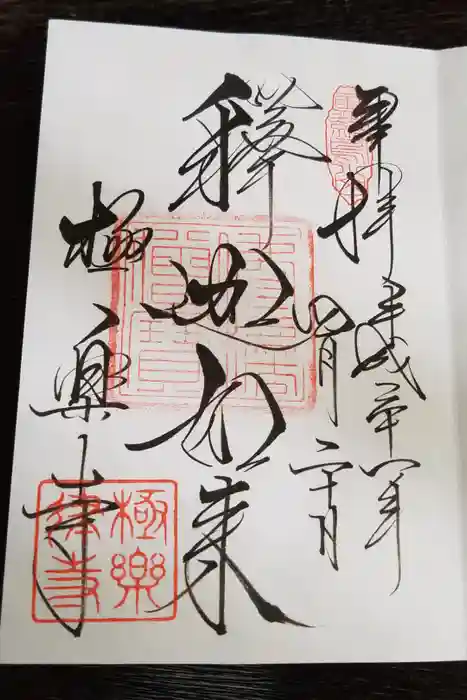 奉拝 平成二十八年
四月二十日
釋迦如来
極樂寺
極樂
律寺